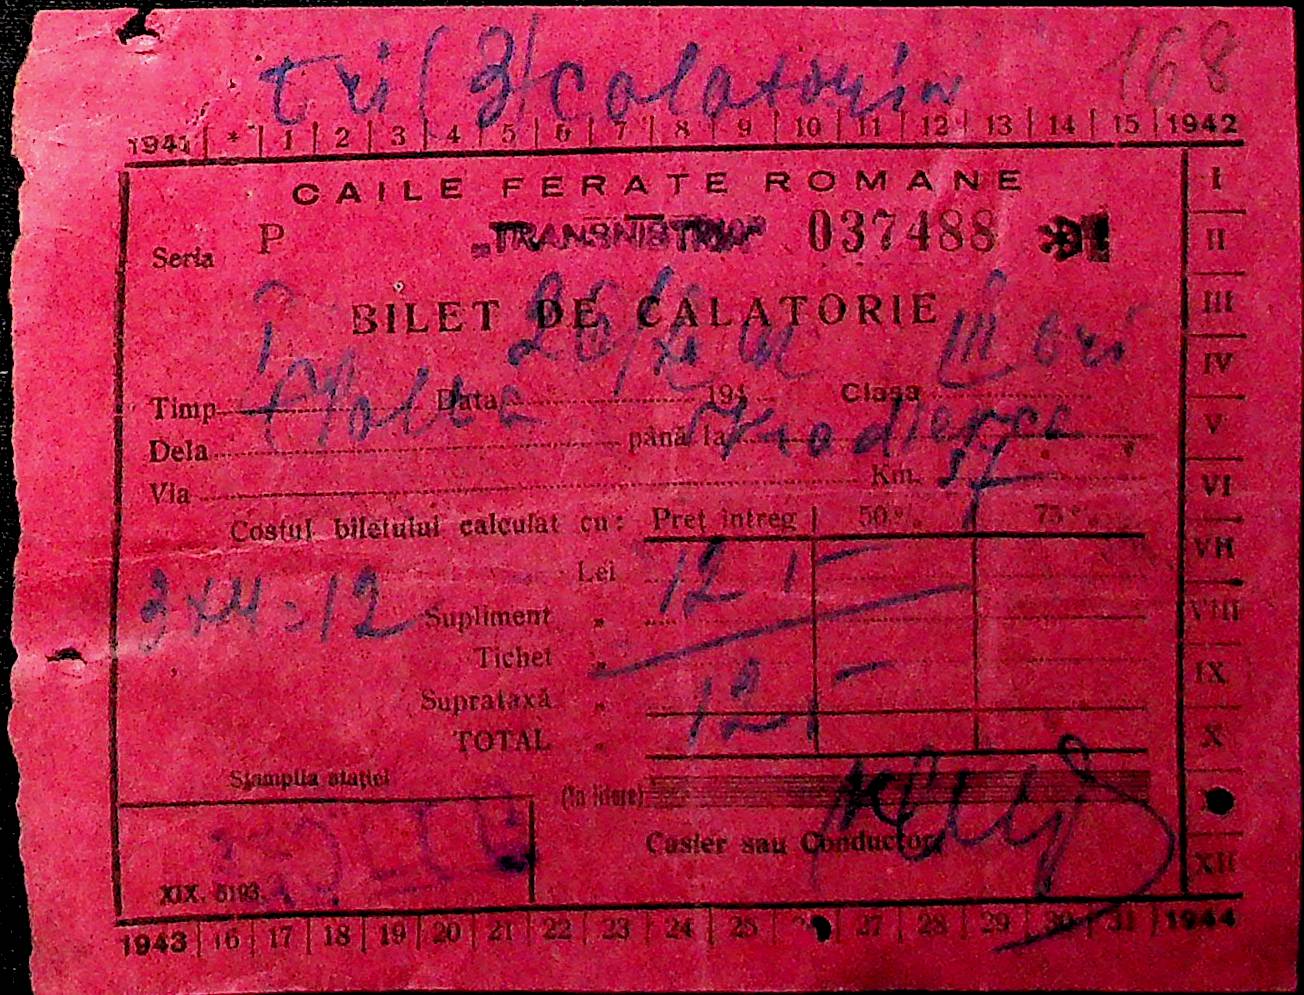 tri (3) calatorii 168
1941 * 1 2 3 4 5 6 7 8 9 10 11 12 13 14 15 1942
CAILE FERATE ROMANE
Seria P „TRANSNISTRIA" 037488
BILET DE CALATORIE
26/XI 941 III tri
Timp Data 194 Clasa
Dela până la
Via Km. 37
Costul biletului calculat cu: Preț întreg 50% 75%
Lei 12,—
3x4=12 Supliment „
Tichet „
Suprataxă „ 12,—
TOTAL „
Stampila stației (În litere)
Casier sau Conductor,
XIX. 5193.
1943 16 17 18 19 20 21 22 23 24 25 27 28 29 30 31 1944
I
II
III
IV
V
VI
VII
VIII
IX
X
XII